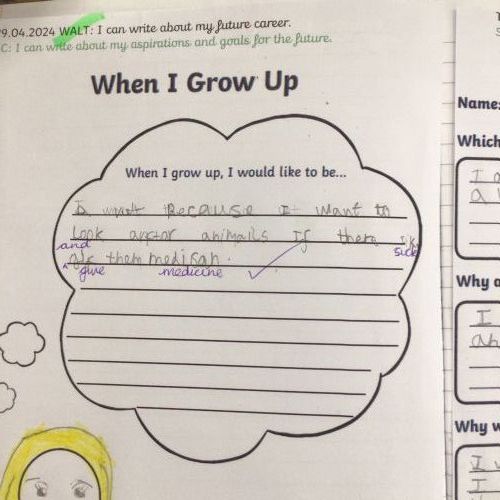 9.04.2024 WALT: I can write about my future career.
C: I can write about my aspirations and goals for the future.
When I Grow Up
When I grow up, I would like to be...
Because I want to
Look animals If there
and sick
them medisan.
give medicine
Name:
Which
I
a
Why a
I
Why w
I
I